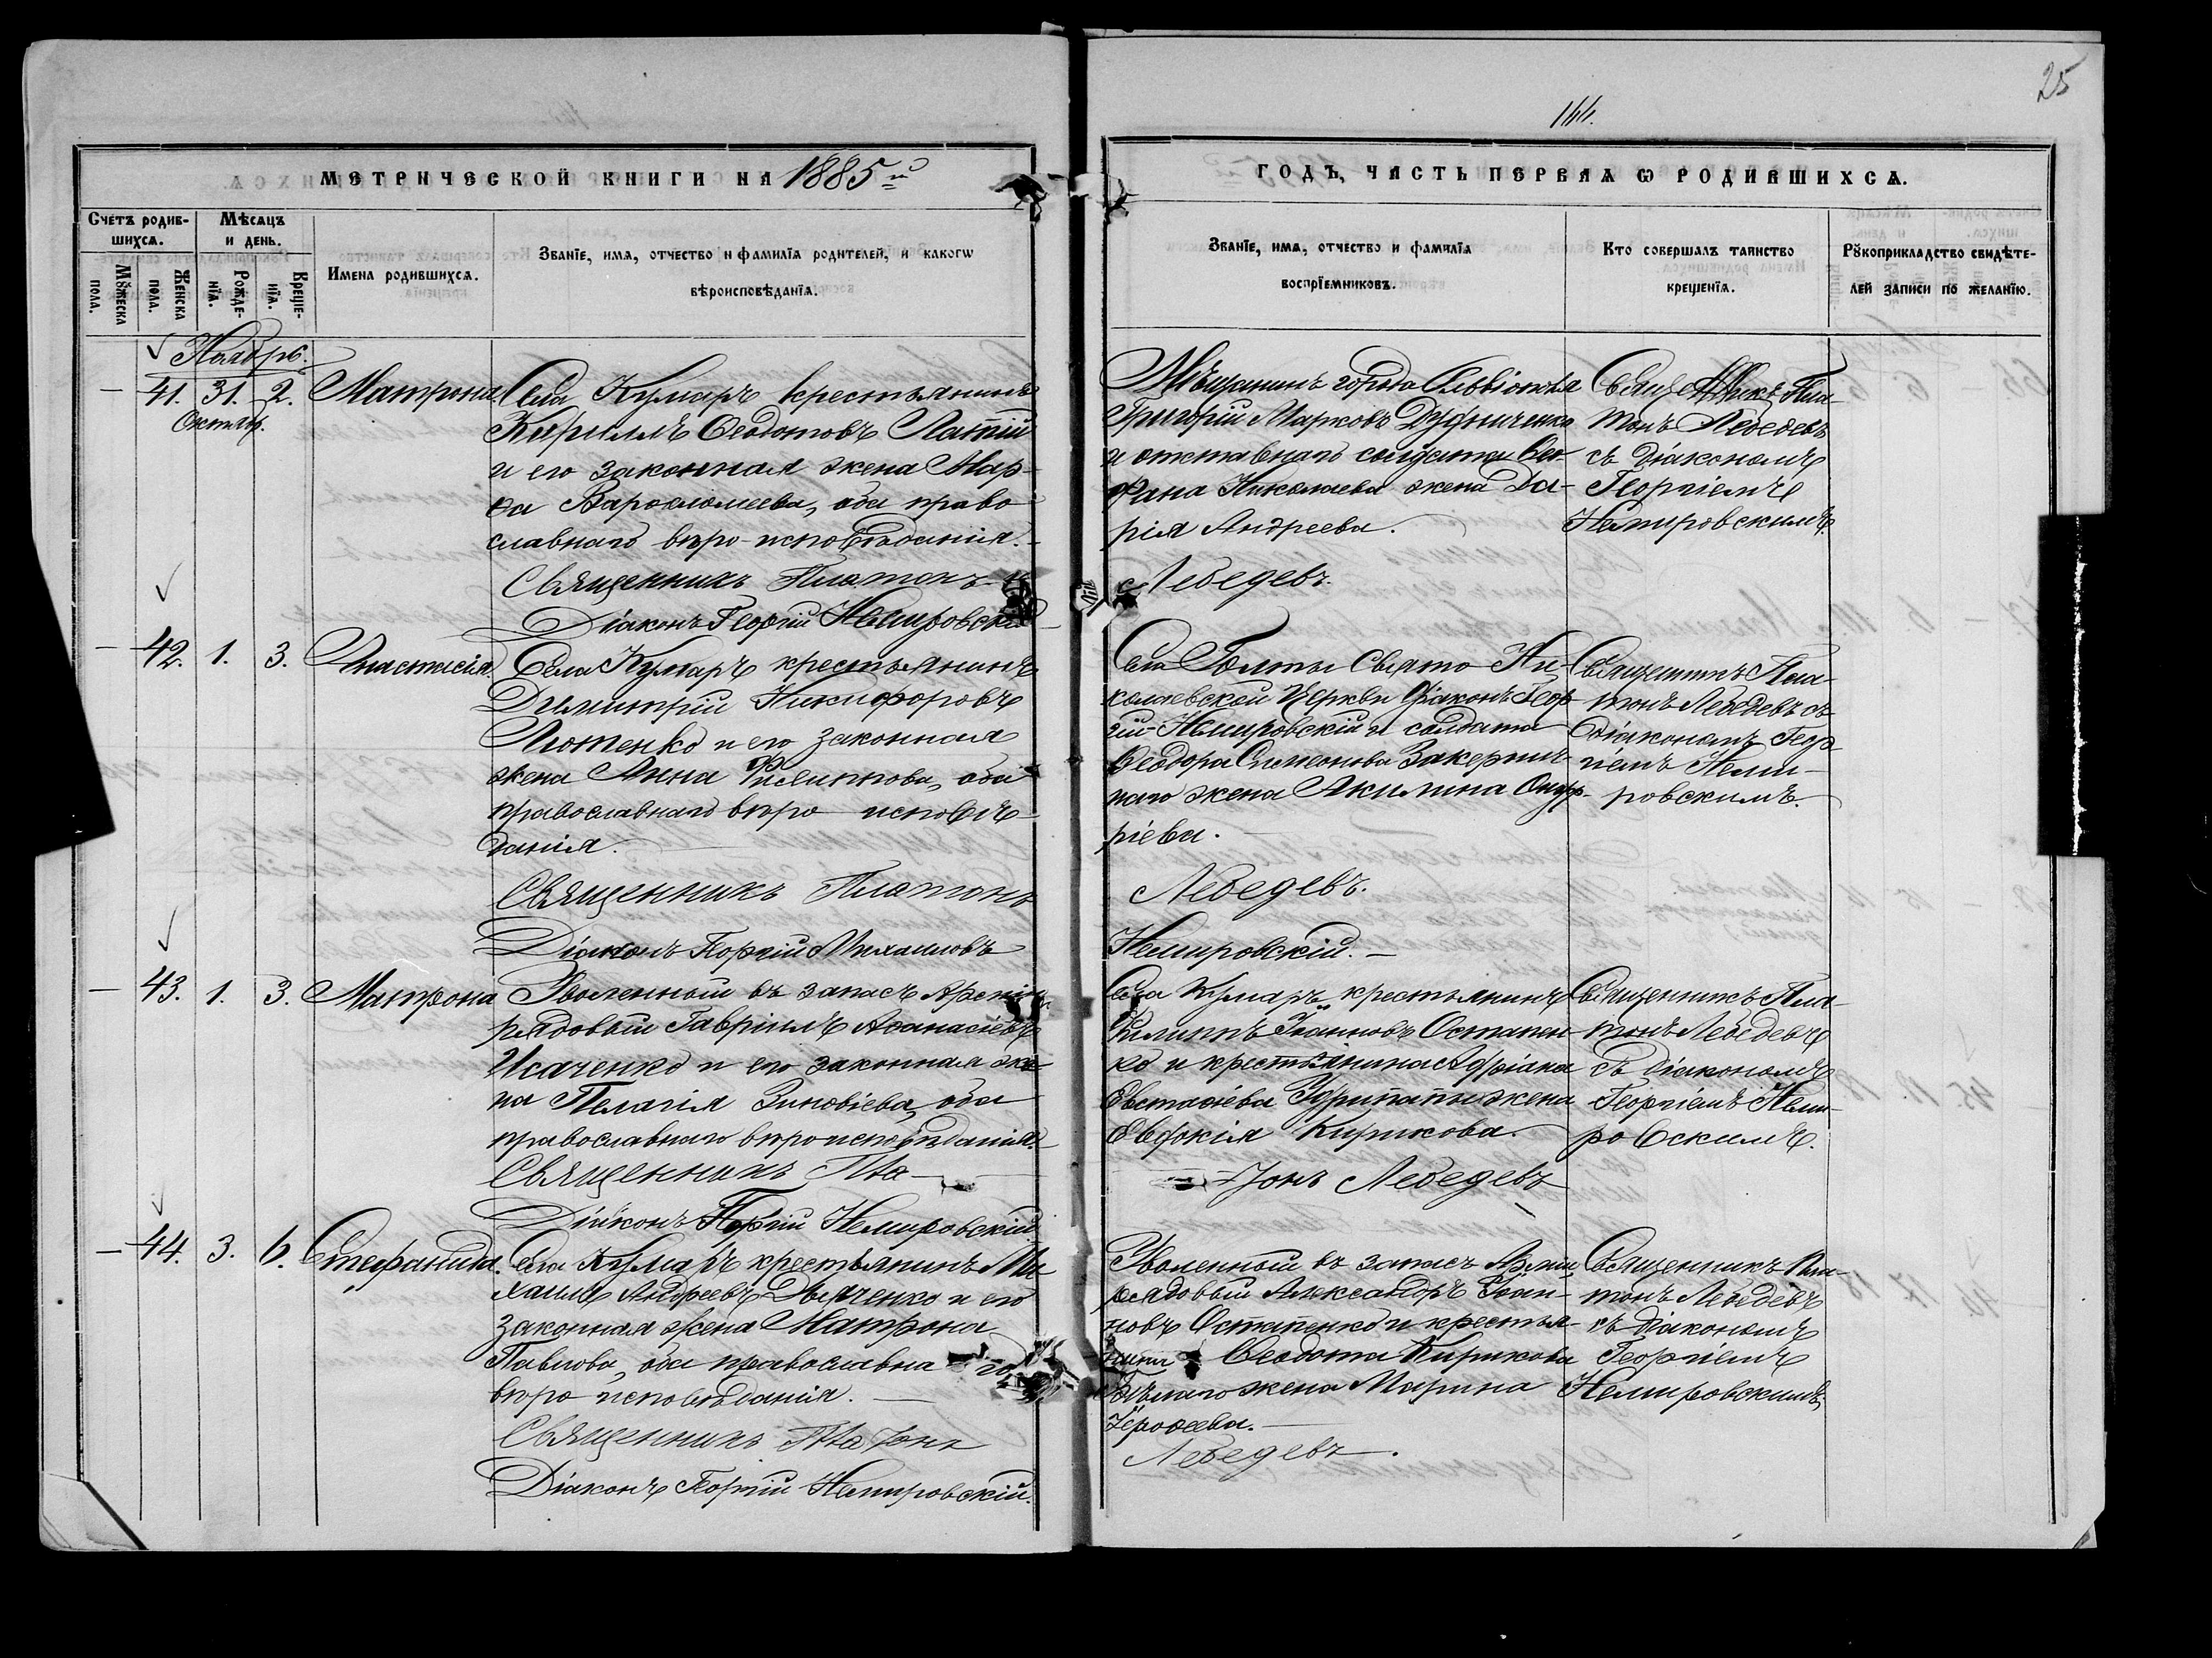 25
144.
МЕТРИЧЕСКОЙ КНИГИ НА 1885й
ГОДЪ, ЧАСТЬ ПЕРВАЯ Ѡ РОДИВШИХСЯ.
Счетъ родив-
шихся.
Мѣсяцъ
и день.
Мужеска
пола.
Женска
пола.
Рожде-
нія.
Креще-
нія.
Имена родившихся.
Званіе, имя, отчество и фамилія родителей, и какогw
вѣроисповѣданія.
Званіе, имя, отчество и фамилія
воспріемниковъ.
Кто совершалъ таинство
крещенія.
Рукоприкладство свидѣте-
лей записи по желанію.
Ноябрь.
— 41. 31. 2. Матрона
Октябр.
Села Кумаръ крестьянинъ
Кириллъ Ѳеодотовъ Лапій
и его законная жена Мар-
ѳа Варѳоломеева, оба право-
славнаго вѣро-исповѣданія.
Священникъ Платонъ
Діаконъ Георгій Немировскій
Мѣщанинъ города Ольвіополя
Григорій Марковъ Дудниченко
и отставнаго солдата
Николаева жена Да-
рія Андреева.
Лебедевъ.
Священникъ Пла-
тонъ Лебедевъ
съ діакономъ
Георгіемъ
Немировскимъ.
— 42. 1. 3. Анастасія.
Села Кумаръ крестьянинъ
Димитрій Никифоровъ
Лютенко и его законная
жена Анна Филиппова, оба
православнаго вѣро исповѣ-
данія.
Священникъ Платонъ
Діаконъ Георгій Михаиловъ
Села Голты Свято Ни-
колаевской Церкви Діаконъ Геор-
гій Немировскій и солдата
Ѳеодора Симеонова
наго жена Акилина Онуф-
ріева.
Лебедевъ.
Немировскій.—
Священникъ Пла-
тонъ Лебедевъ съ
діакономъ Геор-
гіемъ Неми-
ровскимъ.
— 43. 1. 3. Матрона
Уволенный въ запасъ Арміи
рядовый Гавріилъ Аѳанасіевъ
Исаченко и его законная же-
на Пелагія Зиновіева, оба
православнаго вѣроисповѣданія.
Священникъ Пла-
Діаконъ Георгій Немировскій
Села Кумаръ крестьянинъ
Филиппъ Іоанновъ Остапен-
ко и крестьянина Адріана
Евстаѳіева жена
Евдокія Кирикова.
-тонъ Лебедевъ
Священникъ Пла-
тонъ Лебедевъ
съ діакономъ
Георгіемъ Неми-
ровскимъ.
— 44. 3. 6. Стефанида.
Села Кумаръ крестьянинъ Ми-
хаилъ Андреевъ Дьяченко и его
законная жена Матрона
Павлова, оба православна-го
вѣро исповѣданія.—
Священникъ Платонъ
Діаконъ Георгій Немировскій.
Уволенный въ запасъ Арміи
рядовый Александръ Іоан-
новъ Остапенко и крестья-
нина Ѳеодота Кирикова
жена Марина
Іероѳеева.—
Лебедевъ.
Священникъ Пла-
тонъ Лебедевъ
съ діакономъ
Георгіемъ
Немировскимъ.